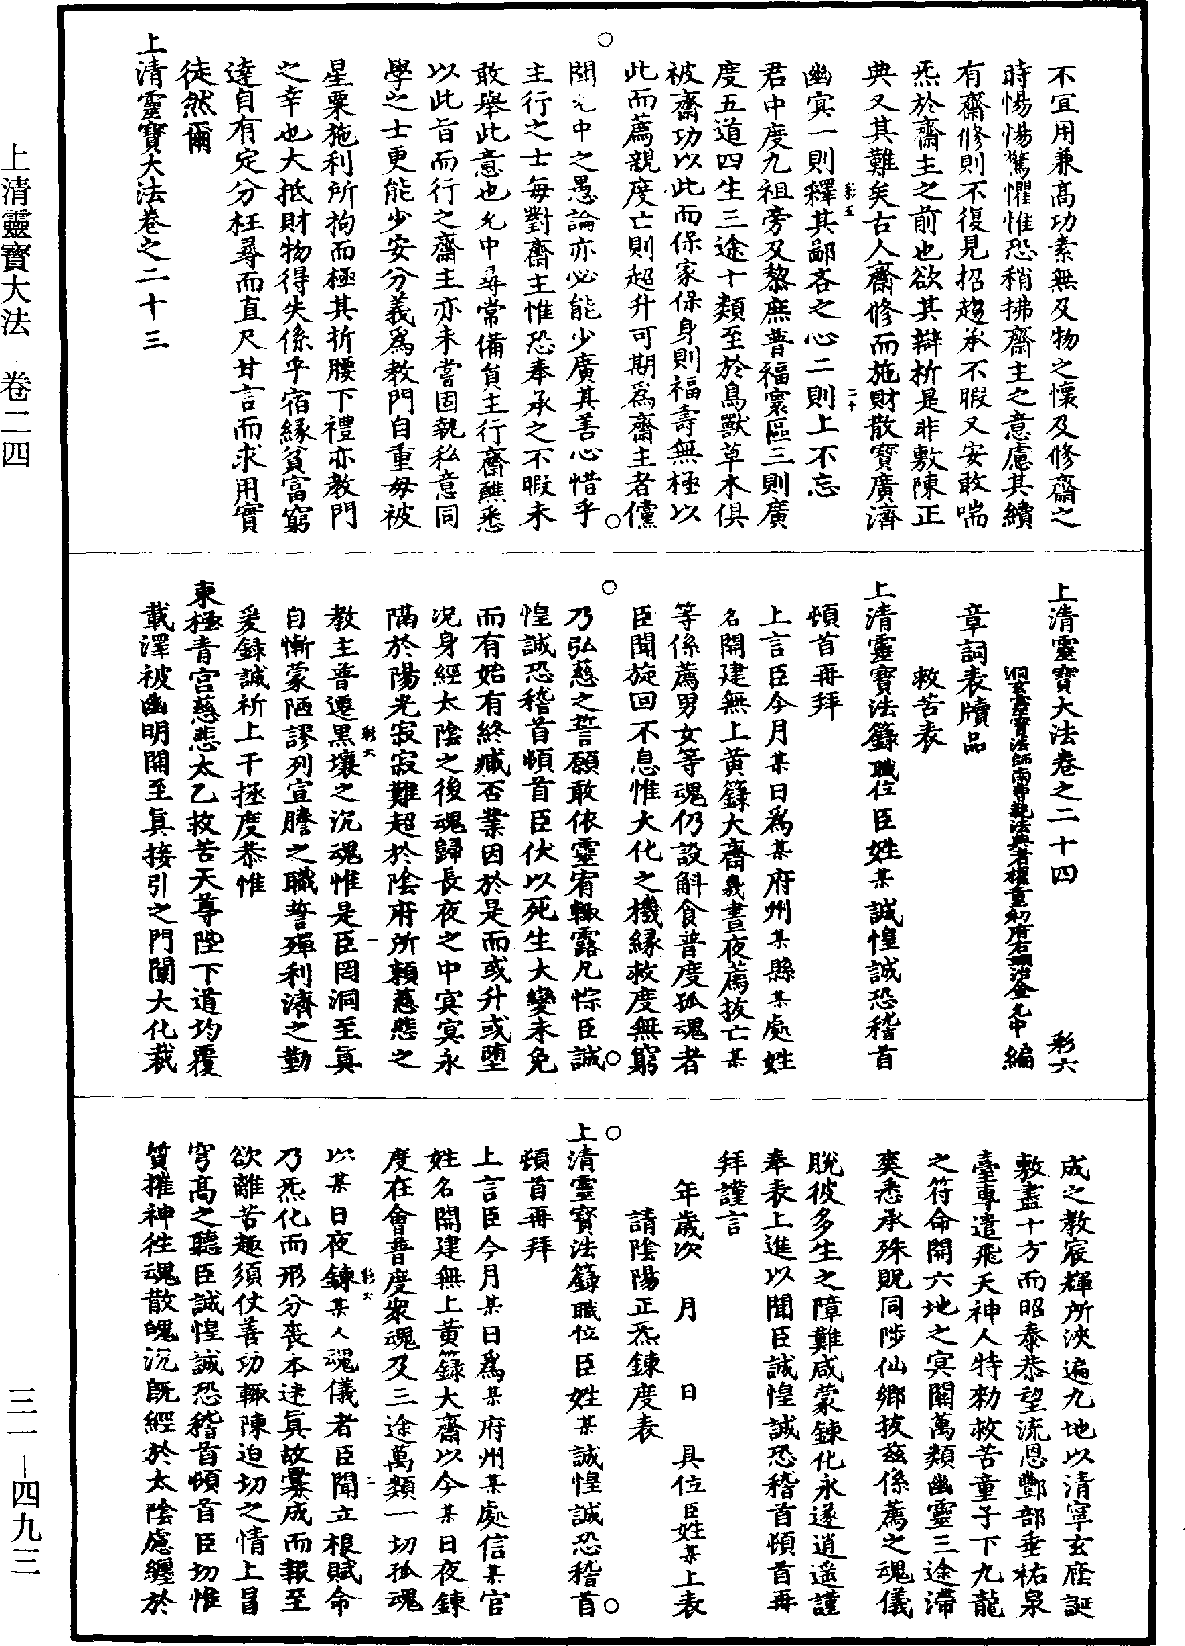 上清靈寶大法　卷二四
三一－四九三
不宜用兼高功素無及物之懷及修齋之
時惕惕驚懼惟恐稍拂齋主之意慮其續
有齋修則不復見招趨承不暇又安敢喘
炁於齋主之前也欲其辯析是非敷陳正
典又其難矣古人齋修而施財散寶廣濟
幽冥一則釋其鄙吝之心二則上不忘
君中度九祖旁及黎庶普福寰區三則廣
度五道四生三途十類至於鳥獸草木俱
被齋功以此而保家保身則福壽無極以
此而薦親度亡則超升可期為齋主者儻
聞允中之愚論亦必能少廣其善心惜乎
主行之士每對齋主惟恐奉承之不暇未
敢舉此意也允中尋常備負主行齋醮悉
以此旨而行之齋主亦未嘗固執私意同
學之士更能少安分義為教門自重毋被
星粟施利所拘而極其折腰下禮亦教門
之幸也大抵財物得失係乎宿緣貧富窮
達自有定分枉尋而直尺甘言而求用實
徒然爾
上清靈寶大法卷之二十三
上清靈寶大法卷之二十四　彩六
洞玄靈寶法師南曹執法典者權童初府右翊治金允中編
章詞表牘品
救苦表
上清靈寶法籙職位臣姓某誠惶誠恐稽首
頓首再拜
上言臣今月某日為某府州某縣某處姓
名開建無上黃籙大齋幾晝夜薦拔亡某
等係薦男女等魂仍設斛食普度孤魂者
臣聞旋回不息惟大化之機緣救度無窮
乃弘慈之誓願敢依靈宥輒露凡悰臣誠
惶誠恐稽首頓首臣伏以死生大變未免
而有始有終臧否業因於是而或升或墮
況身經太陰之後魂歸長夜之中冥冥永
隔於陽光寂寂難超於陰府所賴慈悲之
教主普遷黑壤之沉魂惟是臣罔洞至真
自慚蒙陋謬列宣膽之職誓殫利濟之勤
爰錄誠祈上干拯度恭惟
東極青宮慈悲太乙救苦天尊陛下道均覆
載澤被幽明開至真接引之門闡大化裁
成之教宸輝所浹遍九地以清寧玄座誕
敷盡十方而昭泰恭望流恩酆部垂祐泉
臺專遣飛天神人特勑救苦童子下九龍
之符命開六地之冥關萬類幽靈三途滯
爽悉承殊貺同陟仙鄉拔茲係薦之魂儀
脫彼多生之障難咸蒙鍊化永遂逍遥謹
奉表上進以聞臣誠惶誠恐稽首頓首再
拜謹言
年歲次　月　日　具位臣姓某上表
請陰陽正炁鍊度表
上清靈寶法籙職位臣姓某誠惶誠恐稽首
頓首再拜
上言臣今月某日為某府州某處信某官
姓名開建無上黃籙大齋以今某日夜鍊
度在會普度眾魂及三途萬類一切孤魂
以某日夜鍊某人魂儀者臣聞立根賦命
乃炁化而形分喪本迷真故釁成而報至
欲離苦趣須仗善功輒陳迫切之情上冒
穹高之聽臣誠惶誠恐稽首頓首臣切惟
質摧神徃魂散魄沉既經於太陰慮纏於